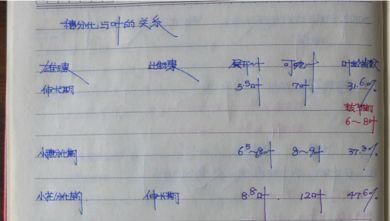 穗分化与叶的关系
雄穗 雌穗 展开叶 可见叶 叶龄指数
伸长期 5.5叶 7叶 31.6%
拔节期
6~8叶
小穗分化期 6.5~8叶 8~9叶 37.3%
小花分化期 伸长期 8.8叶 12叶 47.6%